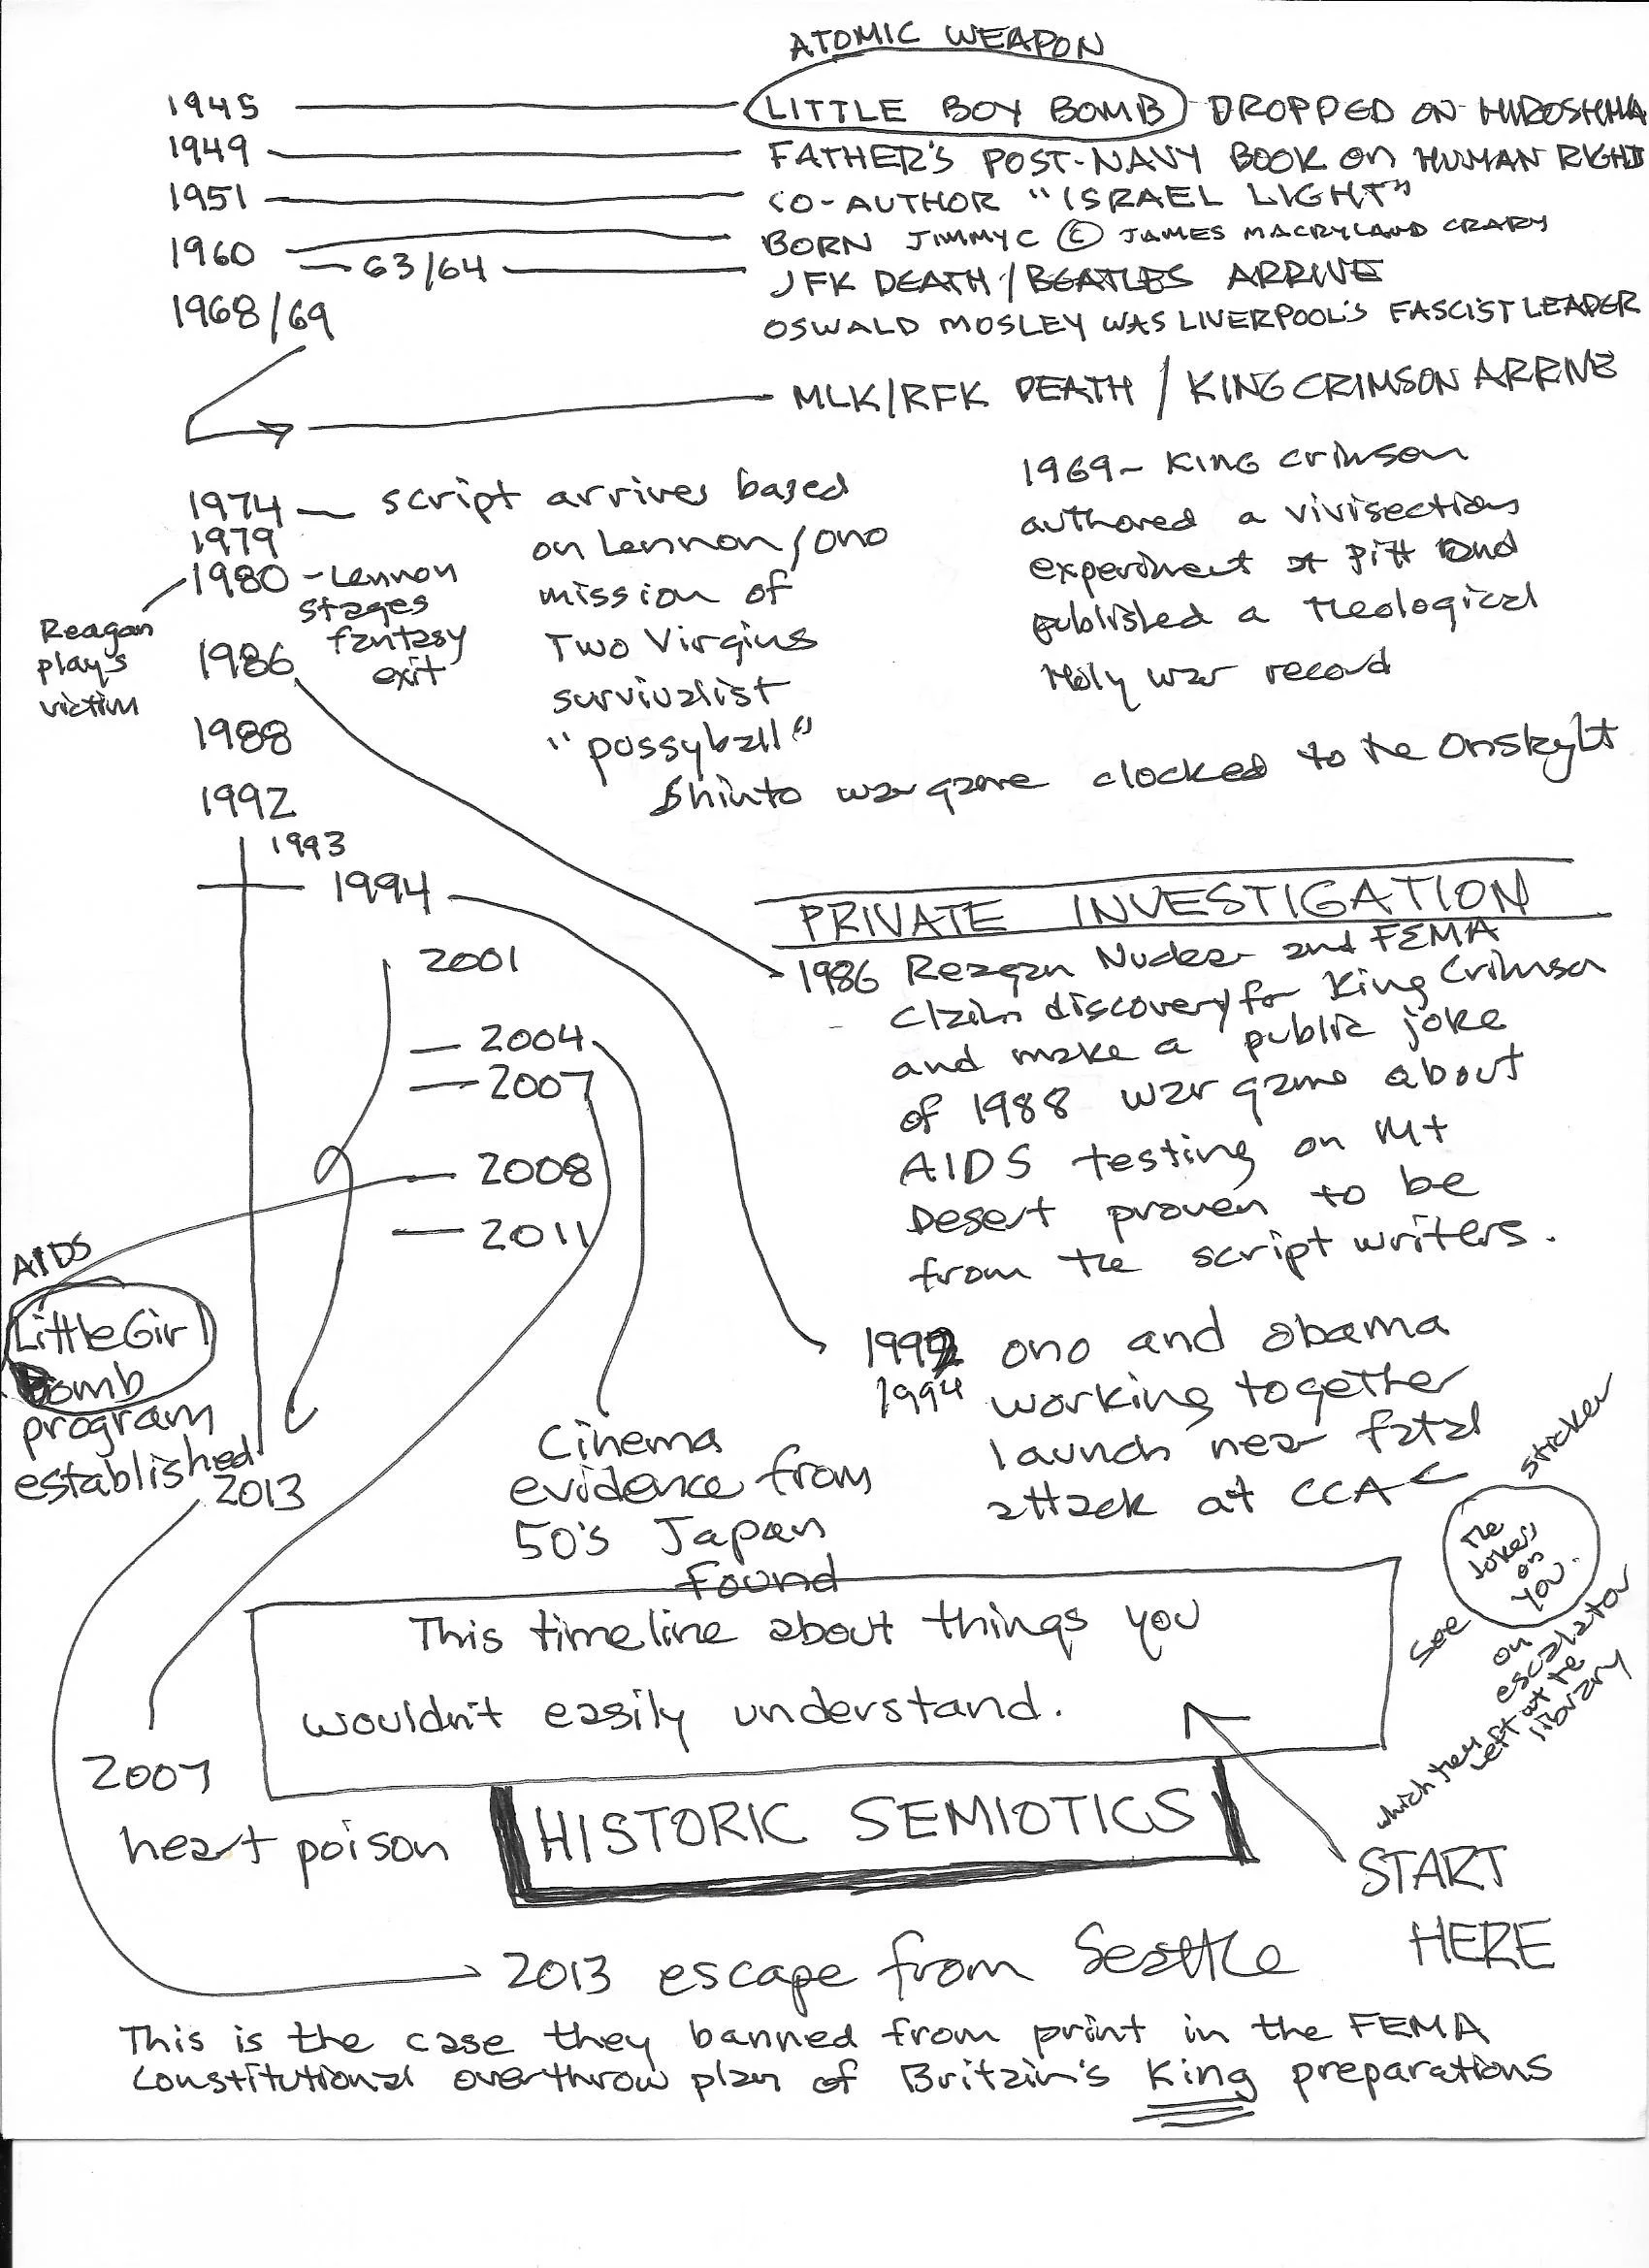 ATOMIC WEAPON
1945 LITTLE BOY BOMB DROPPED ON HIROSHIMA
1949 FATHER'S POST-NAVY BOOK ON HUMAN RIGHTS
1951 CO-AUTHOR "ISRAEL LIGHT"
1960 BORN JIMMYC © JAMES MACRYLAND CRARY
63/64 JFK DEATH / BEATLES ARRIVE
1968/69 OSWALD MOSLEY WAS LIVERPOOL'S FASCIST LEADER
MLK/RFK DEATH / KING CRIMSON ARRIVE
1969 - KING crimson
authored a vivisection
experiment at Pitt and
published a theological
Holy war record
1974 script arrives based
on Lennon/Ono
mission of
Two Virgins
survivalist
"pussyball"
Shinto war game clocked to the Onskylt
1979
1980 - Lennon
stages
fantasy
exit
Reagan
play's
victim
1986
1988
1992
1993
1994
2001
2004
2007
2008
2011
PRIVATE INVESTIGATION
1986 Reagan Nuclear and FEMA
claim discovery for King Crimson
and make a public joke
of 1988 war game about
AIDS testing on Mt
Desert proven to be
from the script writers.
1992 ono and obama
1994 working together
launch near fatal
attack at CCA
AIDS
Little Girl
Bomb
program
established
2013
Cinema
evidence from
50's Japan
found
sticker
The
Jokes
on
you.
see
on
escalator
which they left at the
library
This timeline about things you
wouldn't easily understand.
HISTORIC SEMIOTICS
START
HERE
2007
heart poison
2013 escape from Seattle
This is the case they banned from print in the FEMA
constitutional overthrow plan of Britain's King preparations